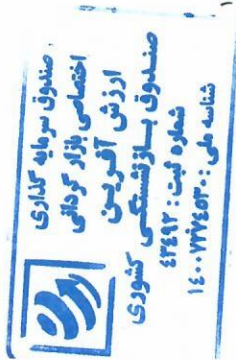 صندوق سرمایه گذاری
اختصاصی بازار گردانی
ارزش آفرین
صندوق بازنشستگی کشوری
شماره ثبت : ۴۳۴۹۲
شناسه ملی : ۱۴۰۰۷۷۷۴۵۳۰